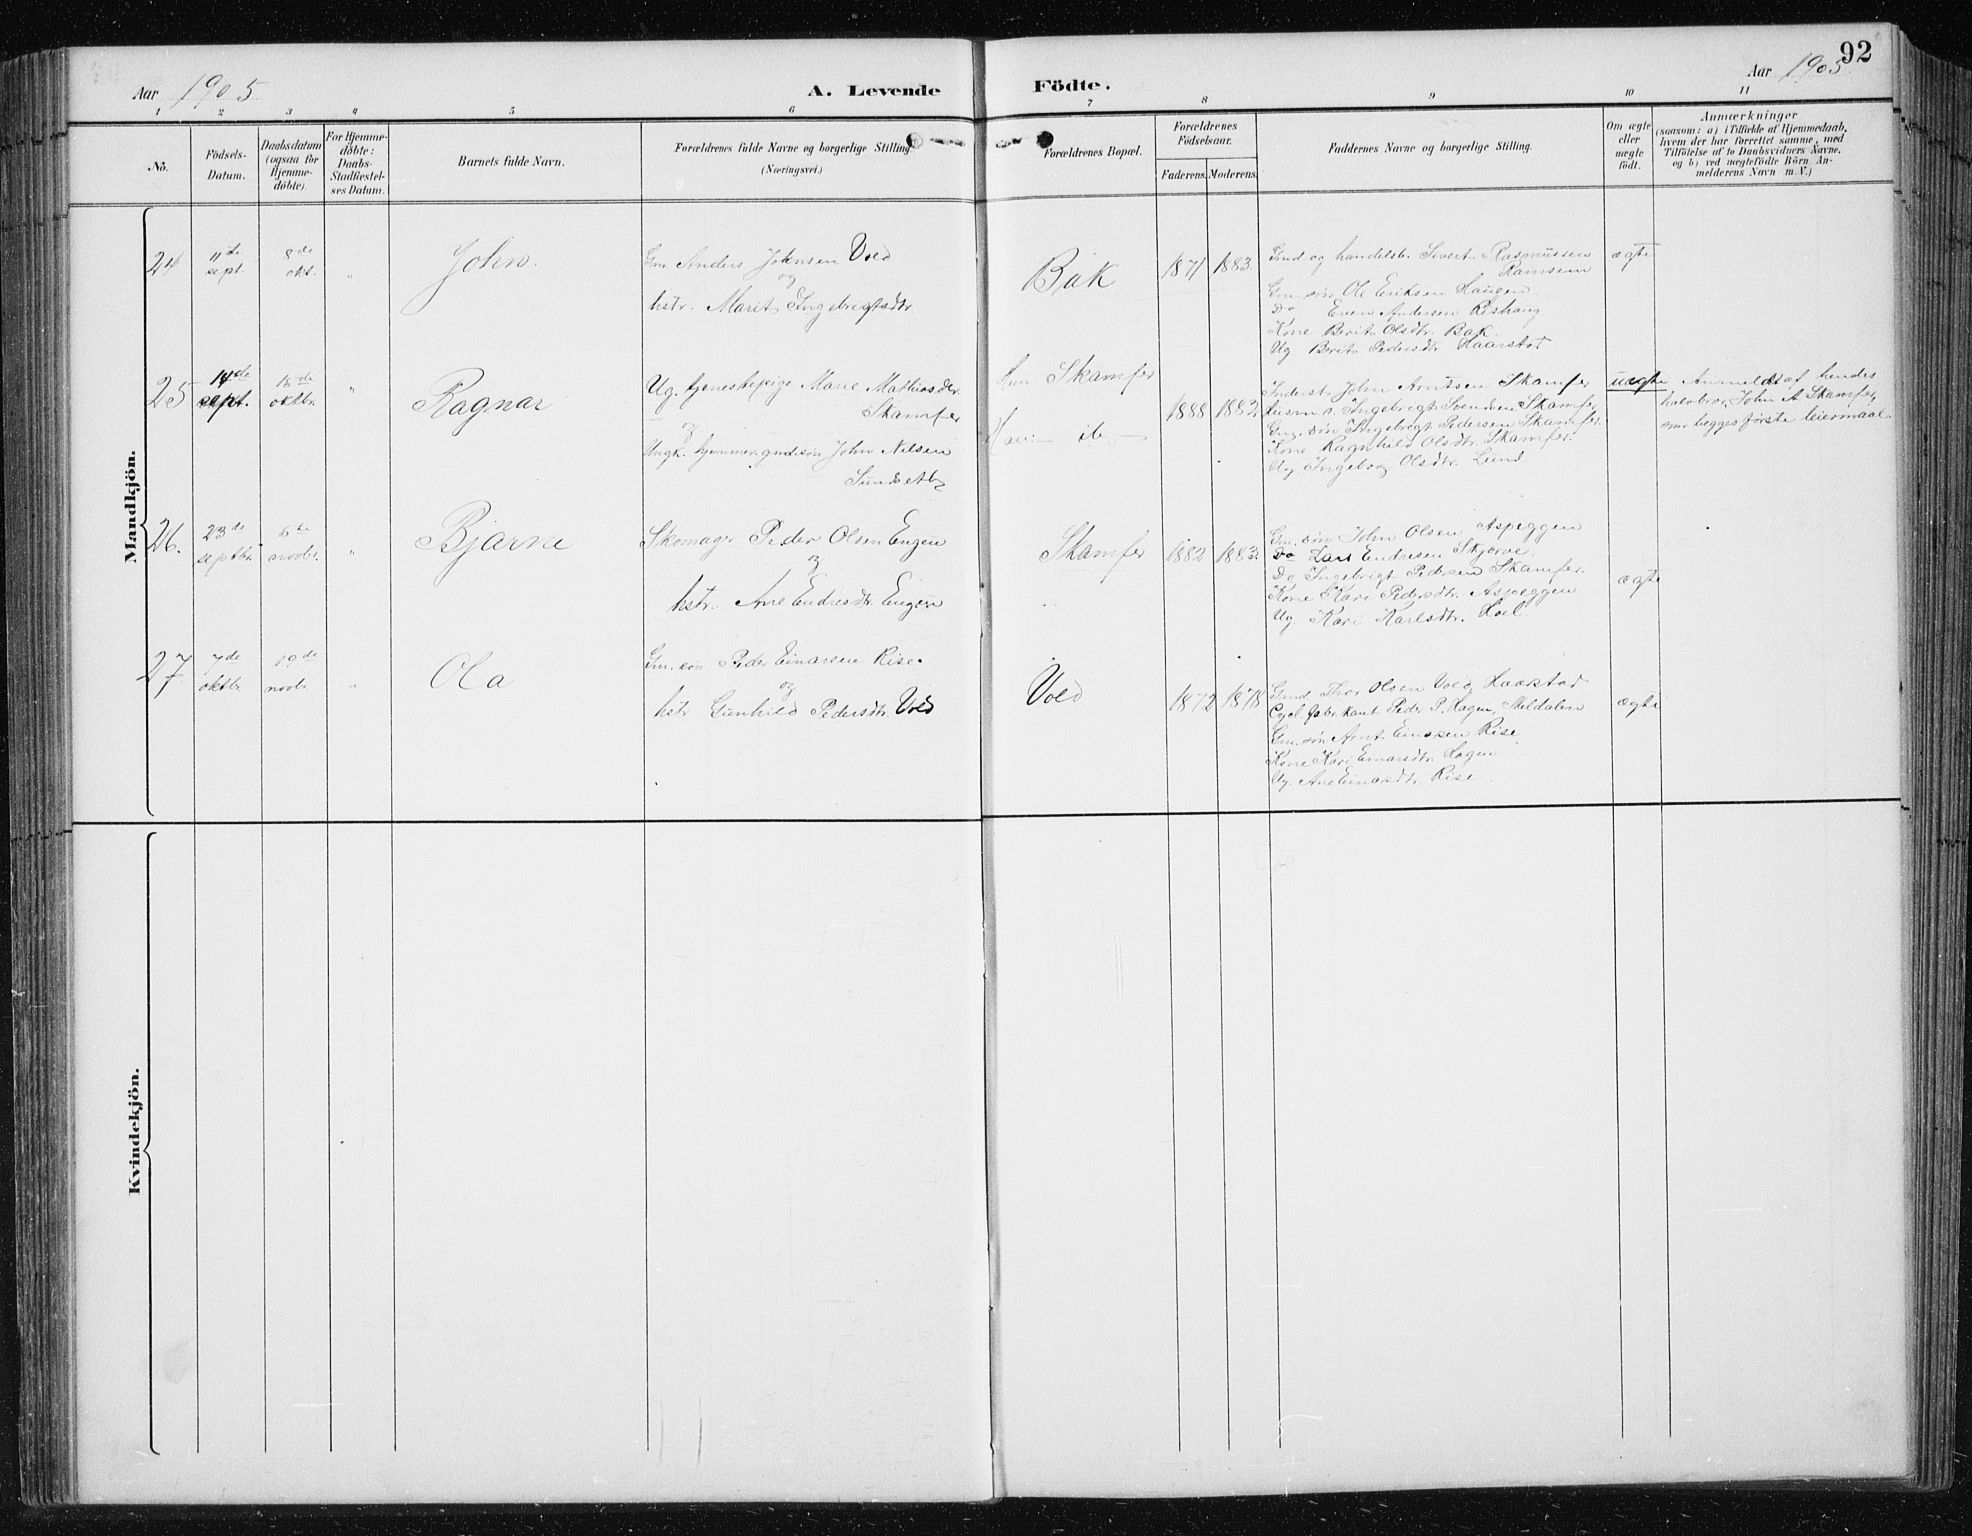 Aar 1905
A. Levende
Födte.
Aar 1905
92
1 2 3 4 5 6 7 8 9 10 11
No.
Födsels-
Datum.
Daabsdatum
(ogsaa for
Hjemme-
döbte).
For Hjemme-
döbte:
Daabs-
Stadfæstel-
ses Datum.
Barnets fulde Navn.
Forældrenes fulde Navne og borgerlige Stilling
(Næringsvei.)
Forældrenes Bopæl.
Forældrenes
Födselsaar.
Faderens.
Moderens.
Faddernes Navne og borgerlige Stilling.
Om ægte
eller
uægte
födt.
Anmærkninger
(saasom: a) i Tilfælde af Hjemmedaab,
hvem der har forrettet samme, med
Tilföielse af to Daabsvidners Navne.
og b) ved uægtefödte Börn An-
melderens Navn m. V.)
Mandkjön.
24
11te
sept.
8de
okt.
"
John.
Gm. Anders Johnsen Vold
og
hstr. Marit Ingebrigtsdtr.
Bak
1871
1883.
Gmd og handelsb. Sivert Rasmussen
Ramsem
Gm. søn Ole Eriksen Haugen
Do Even Andersen Rishaug
Kone Berit Olsdtr. Bak.
Ug Berit Pedersdtr Haarstad
ægte
25
14de
sept.
15de
oktbr.
"
Ragnar
Ug. tjenestepige Marie Mathiasdtr
Skamfer
og
Ungk. hjemmev. gmdsøn John Nilsen
Sundsetb
Hun Skamfer
Han — ib —
1888
1882
Inderst John Arntsen Skamfer
Husm. s. Ingebrigt Svendsen Skamfer
Gm. søn Ingebrigt Pedersen Skamfer.
Kone Ragnhild Olsdtr. Skamfer.
Ug. Ingeborg Olsdtr. Lund
uægte
Anmeldt af hendes
halvbror, John A Skamfer,
som begges første leiermaal
26.
23de
septbr.
5te
novbr.
"
Bjarne
Skomager Peder Olsen Engen
og
hstr. Ane Endresdtr. Engen
Skamfer
1882
1883.
Gm. søn John Olsen Aspeggen
Do Lars Endresen Skjerve.
Do Ingebrigt Pedersen Skamfer.
Kone Kari Pedersdtr. Aspeggen
Ug. Kari Karlsdtr. Hoel.
ægte
27
7de
oktbr.
19de
novbr.
"
Ola
Gm. søn Peder Einarsen Rise.
og
hstr Gunhild Pedersdtr. Vold
Vold
1872
1878
Gmd Thor Olsen Vold, Haarstad
Cycl. fabrikant Peder P. Hagen, Meldalen
Gm. søn Arnt Einarsen Rise
Kone Kari Einarsdtr. Hagen
Ug. Ane Einarsdtr. Rise.
ægte
Kvindekjön.